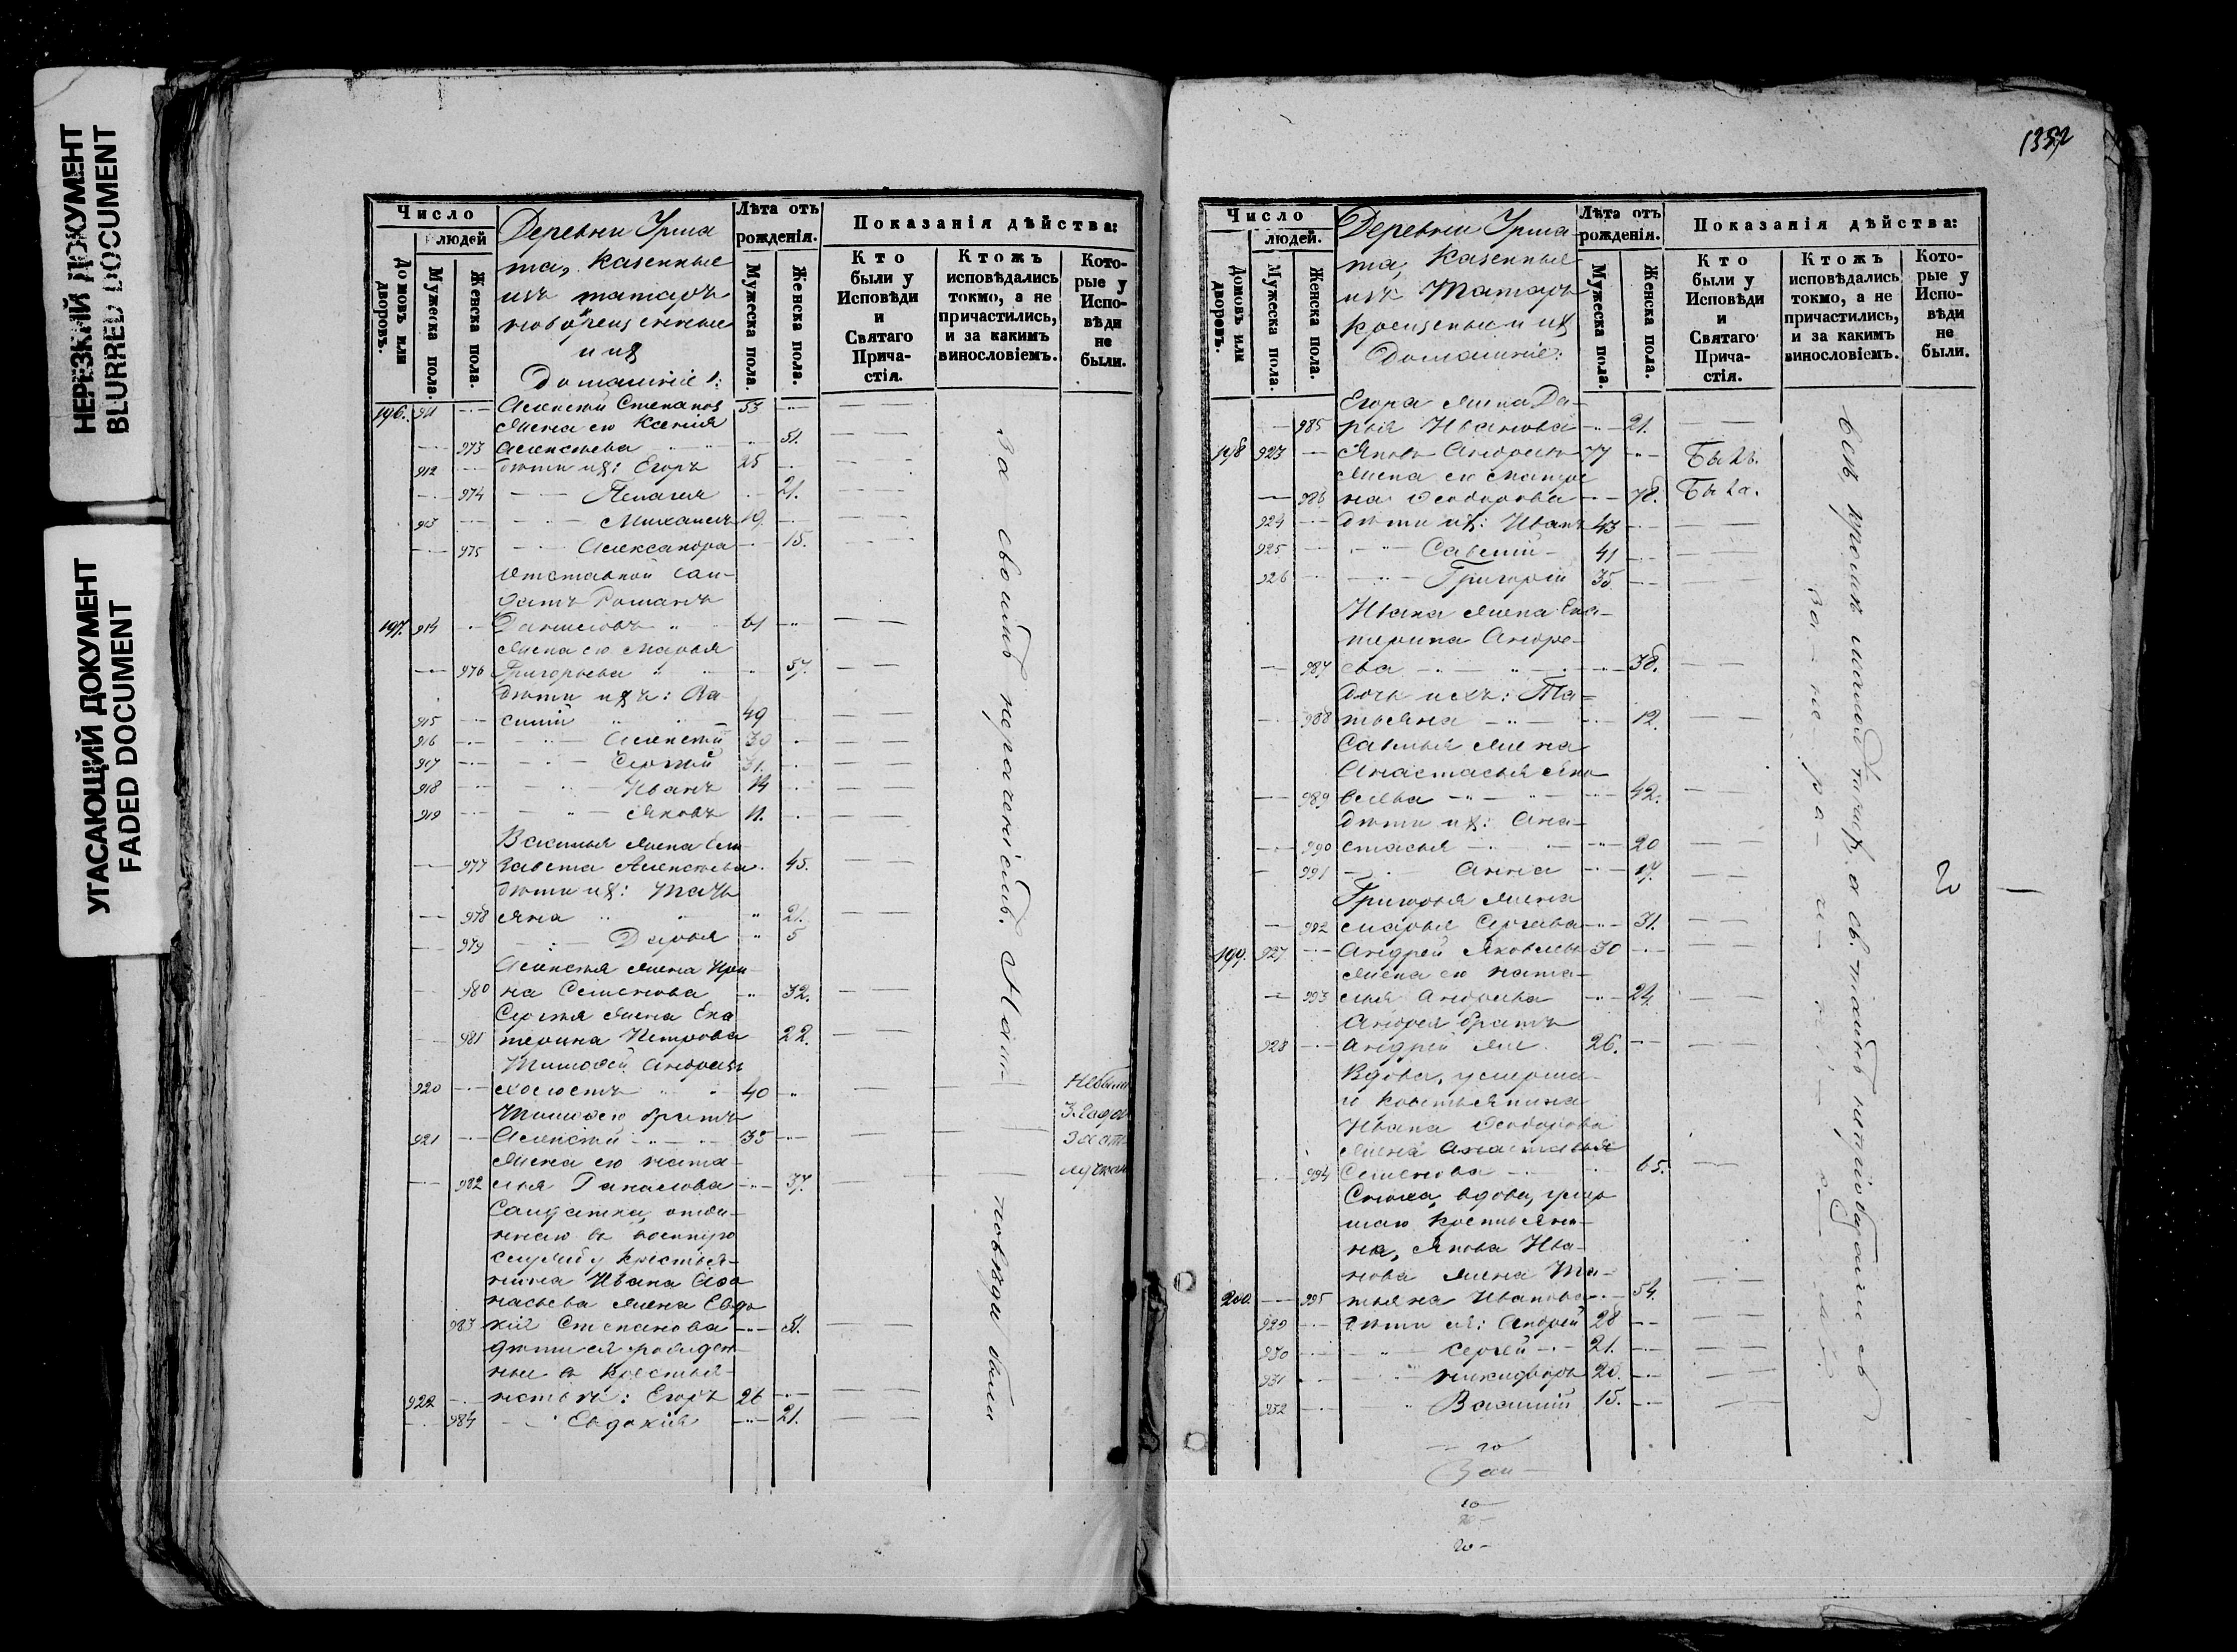 НЕРЕЗКИЙ ДОКУМЕНТ
BLURRED DOCUMENT
УГАСАЮЩИЙ ДОКУМЕНТ
FADED DOCUMENT
Число
людей
Домовъ или дворовъ.
Мужеска пола.
Женска пола.
Деревни Урма
та, казенные
изъ татаръ
новокрещенные
и ихъ
Домашніе:
Лѣта отъ рожденія.
Мужеска пола.
Женска пола.
Показанія дѣйства:
Кто были у Исповѣди и Святаго Прича- стія.
Ктожъ исповѣдались токмо, а не причастились, и за какимъ винословіемъ.
Кото- рые у Испо- вѣди не были.
196. 911 Алексѣй Степановъ 53
Жена его Ксенія
973 Алексѣева 51.
912 дѣти ихъ: Егоръ 25
974 Пелагея 21.
913 Михаилъ 19
975 Александра 15.
Отставной сол-
датъ Романъ
197. 914 Даниловъ 61
Жена его Марья
976 Григорьева 57.
дѣти ихъ: Ва
915 силій 49
916 Алексѣй 39
917 Сергѣй 31.
918 Иванъ 14
919 Яковъ 11.
Василья жена Ели
977 завета Алексѣева 45.
дѣти ихъ: Тать
978 яна 21.
979 Дарья 5
Алексѣя жена Ири
980 на Семенова 32.
Сергѣя жена Ека
981 терина Петрова 22.
Тимофей Андреевъ
920 холостъ 40
Тимофея братъ
921 Алексѣй 35
Жена его Ната-
982 лья 37.
Солдатка, отдан-
наго въ военную
службу крестья-
нина Ивана Афа
насьева жена Евдо
983 кія Степанова 51.
дѣти ея рожден-
ные въ крестья-
922 нствѣ: Егоръ 26
984 Евдокія 21.
За своимъ нераченіемъ.
были
1352
Число
людей.
Домовъ или дворовъ.
Мужеска пола.
Женска пола.
Деревни Урма-
та, казенные
изъ татаръ
крещеные и ихъ
Домашніе:
Лѣта отъ рожденія.
Мужеска пола.
Женска пола.
Показанія дѣйства:
Кто были у Исповѣди и Святаго Прича- стія.
Ктожъ исповѣдались токмо, а не причастились, и за какимъ винословіемъ.
Кото- рые у Испо- вѣди не были.
Егора жена Да-
985 рья Иванова 21.
198 923 Яковъ Андреевъ 77 Былъ.
Жена его Матре
986 на Феодорова 78. Была.
924 дѣти ихъ: Иванъ 43
925 Савелій 41
926 Григорій 35
Ивана жена Ека-
терина Андре-
987 ева 38.
дочь ихъ: Та-
988 тьяна 12.
Савелья жена
Анастасья Яко
989 влева 42.
дѣти ихъ: Ана-
990 стасья 20
991 Анна 17.
Григорья жена
992 Марья Сергѣева 31.
199. 927 Андрей Яковлевъ 30
Жена его Ната-
993 лья Андреева 24.
Андрея братъ
928 Андрей 26.
Вдова, умерша-
го крестьянина
Ивана Феодорова
жена Анастасья
994 Семенова 65.
Сноха, вдова, умер
шаго крестьяни-
на, Якова Ива-
нова жена Та-
200. 995 тьяна Иванова 54.
929 дѣти ея: Андрей 28
930 Сергѣй 21.
931 Никифоръ 20.
932 Василій 15.